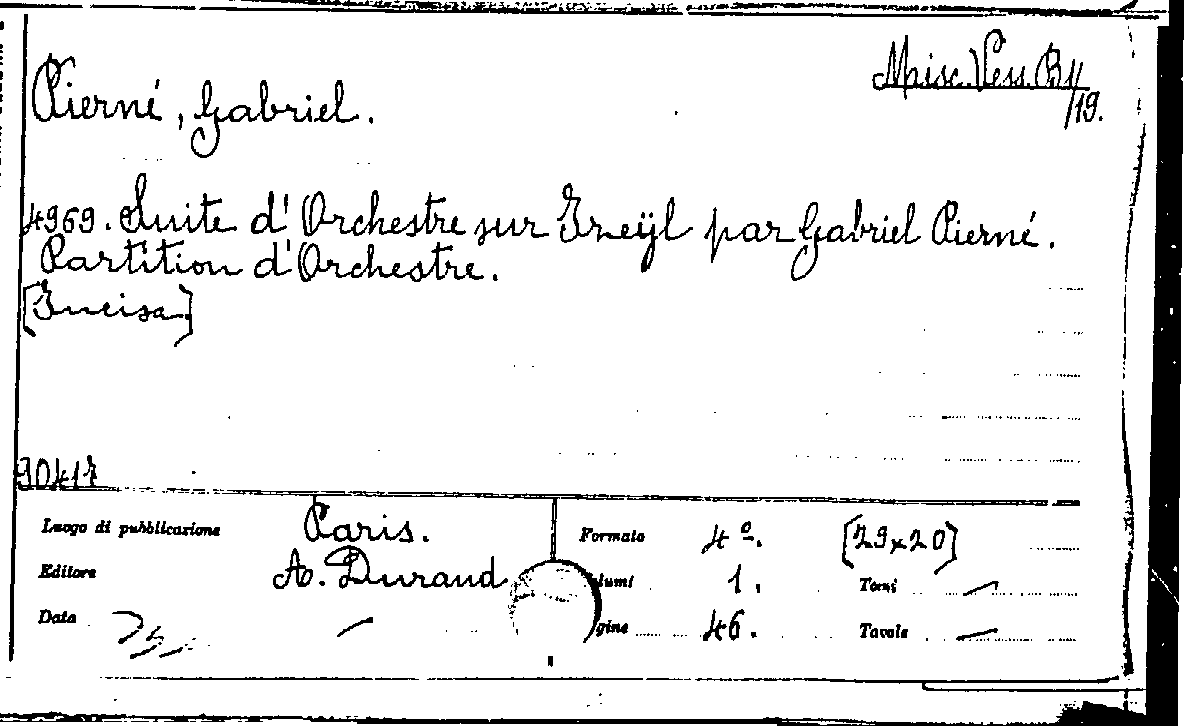 Misc. Vess. B 11
/19.
Pierné, Gabriel.
4969. Suite d'Orchestre sur Izeÿl par Gabriel Pierné.
Partition d'Orchestre.
[Incisa]
90417
Luogo di pubblicazione Paris. Formato 4º. [29x20]
Editore A. Durand lumi 1. Tomi —
Data — gine 46. Tavole —